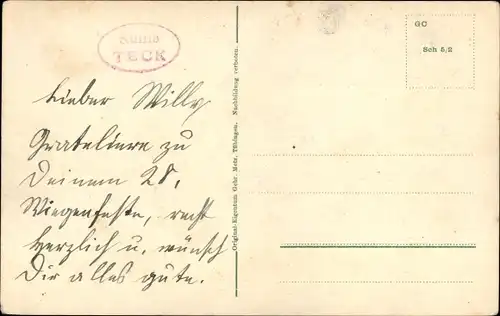 Ruine
TECK
Lieber Willy
Grateliere zu
Deinem 28,
Wiegenfeste, recht
herzlich u. wünsch
Dir alles gute.
Original-Eigentum Gebr. Metz, Tübingen. Nachbildung verboten.
GC
Sch 5/2